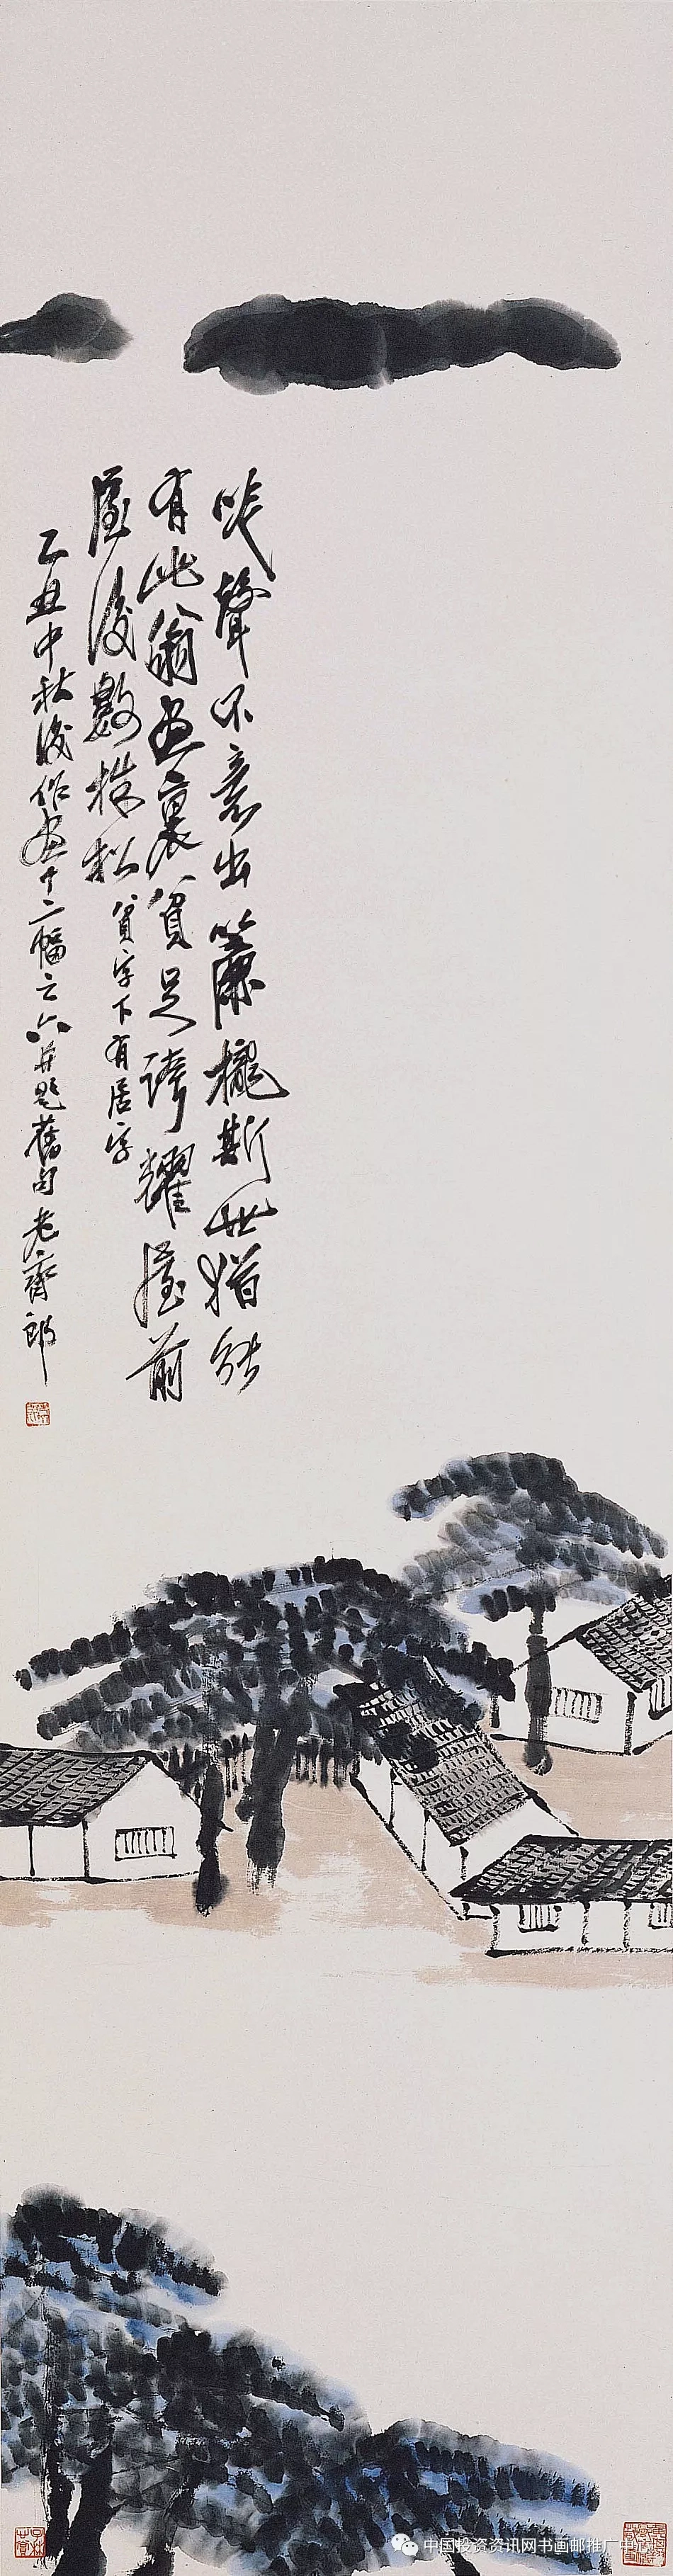 咲聲不意出簾櫳斯世猶能
有此翁畫裏貧足誇耀屋前
屋後數株松貧字下有居字
乙丑中秋後作畫十二幅之六并題舊句老齊郎
中国投资资讯网书画邮推广中心